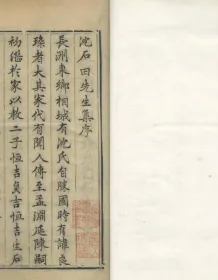 沈石田先生集序
長洲東鄉相城有沈氏自勝國時有諱良
琛者大其家代有聞人傳至孟淵延陳嗣
初繼於家以教二子恒吉貞吉恒吉生石